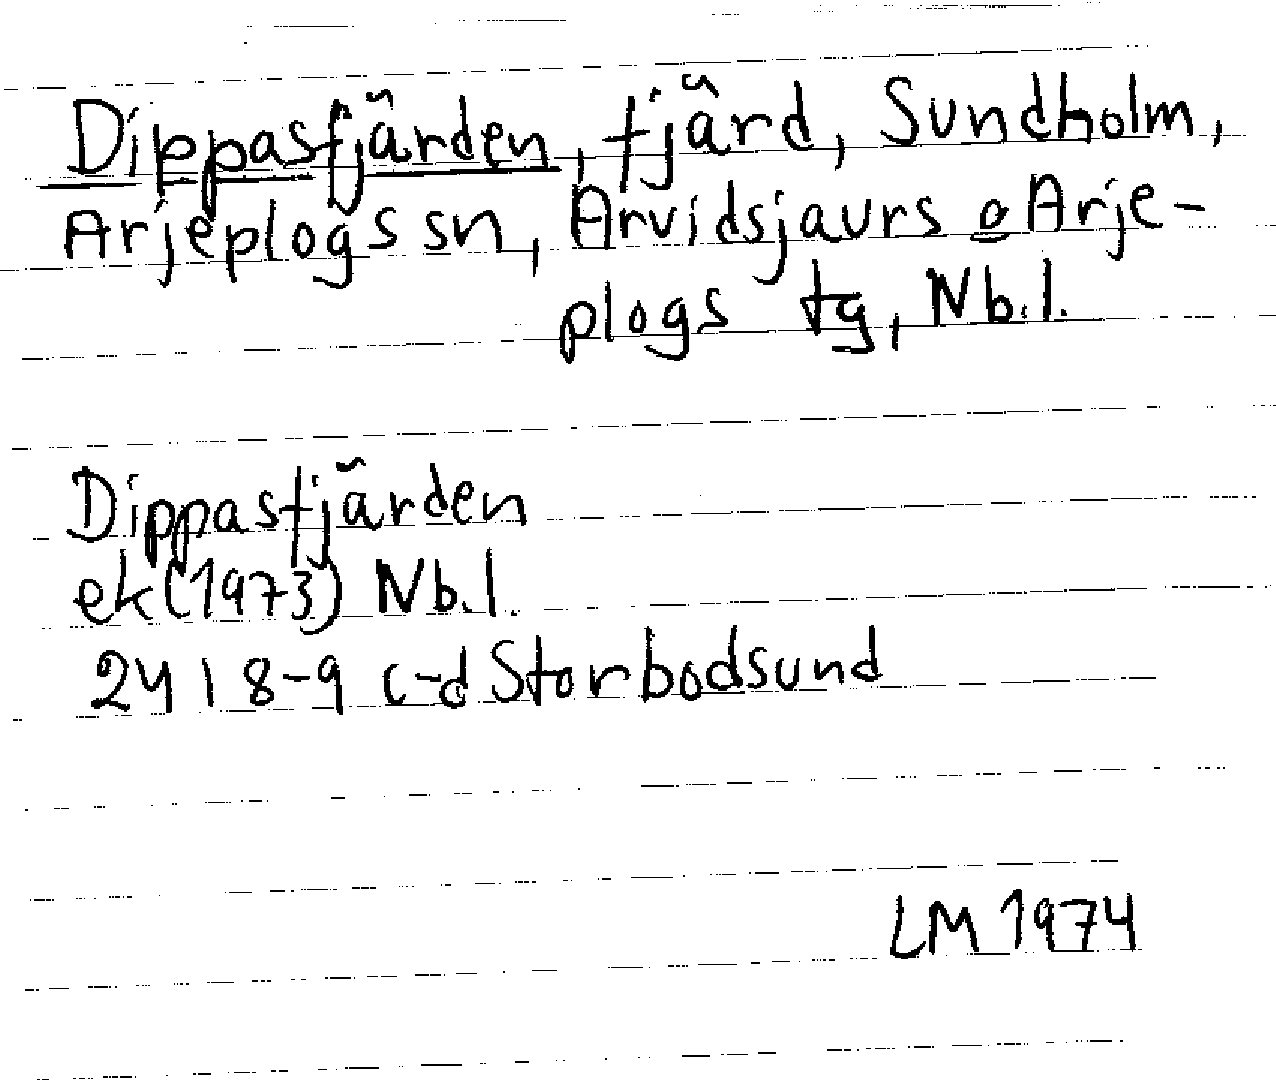 Dippasfjärden, fjärd, Sundholm,
Arjeplogs sn, Arvidsjaurs o Arje-
plogs tg, Nb.l.
Dippasfjärden
ek (1973) Nb.l.
24 I 8-9 c-d Storbodsund
LM 1974